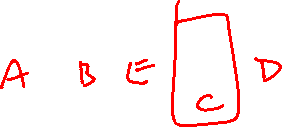 A B E C D